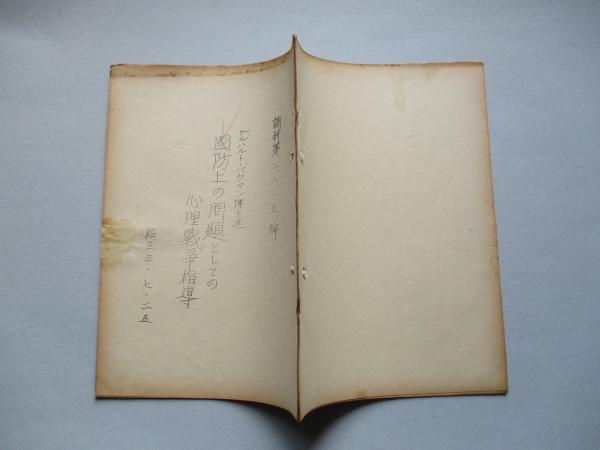 調秘第二八二六号
ゲルハルト・バウマン博士述
國防上の問題としての
心理戰爭指導
昭三三・七・二五